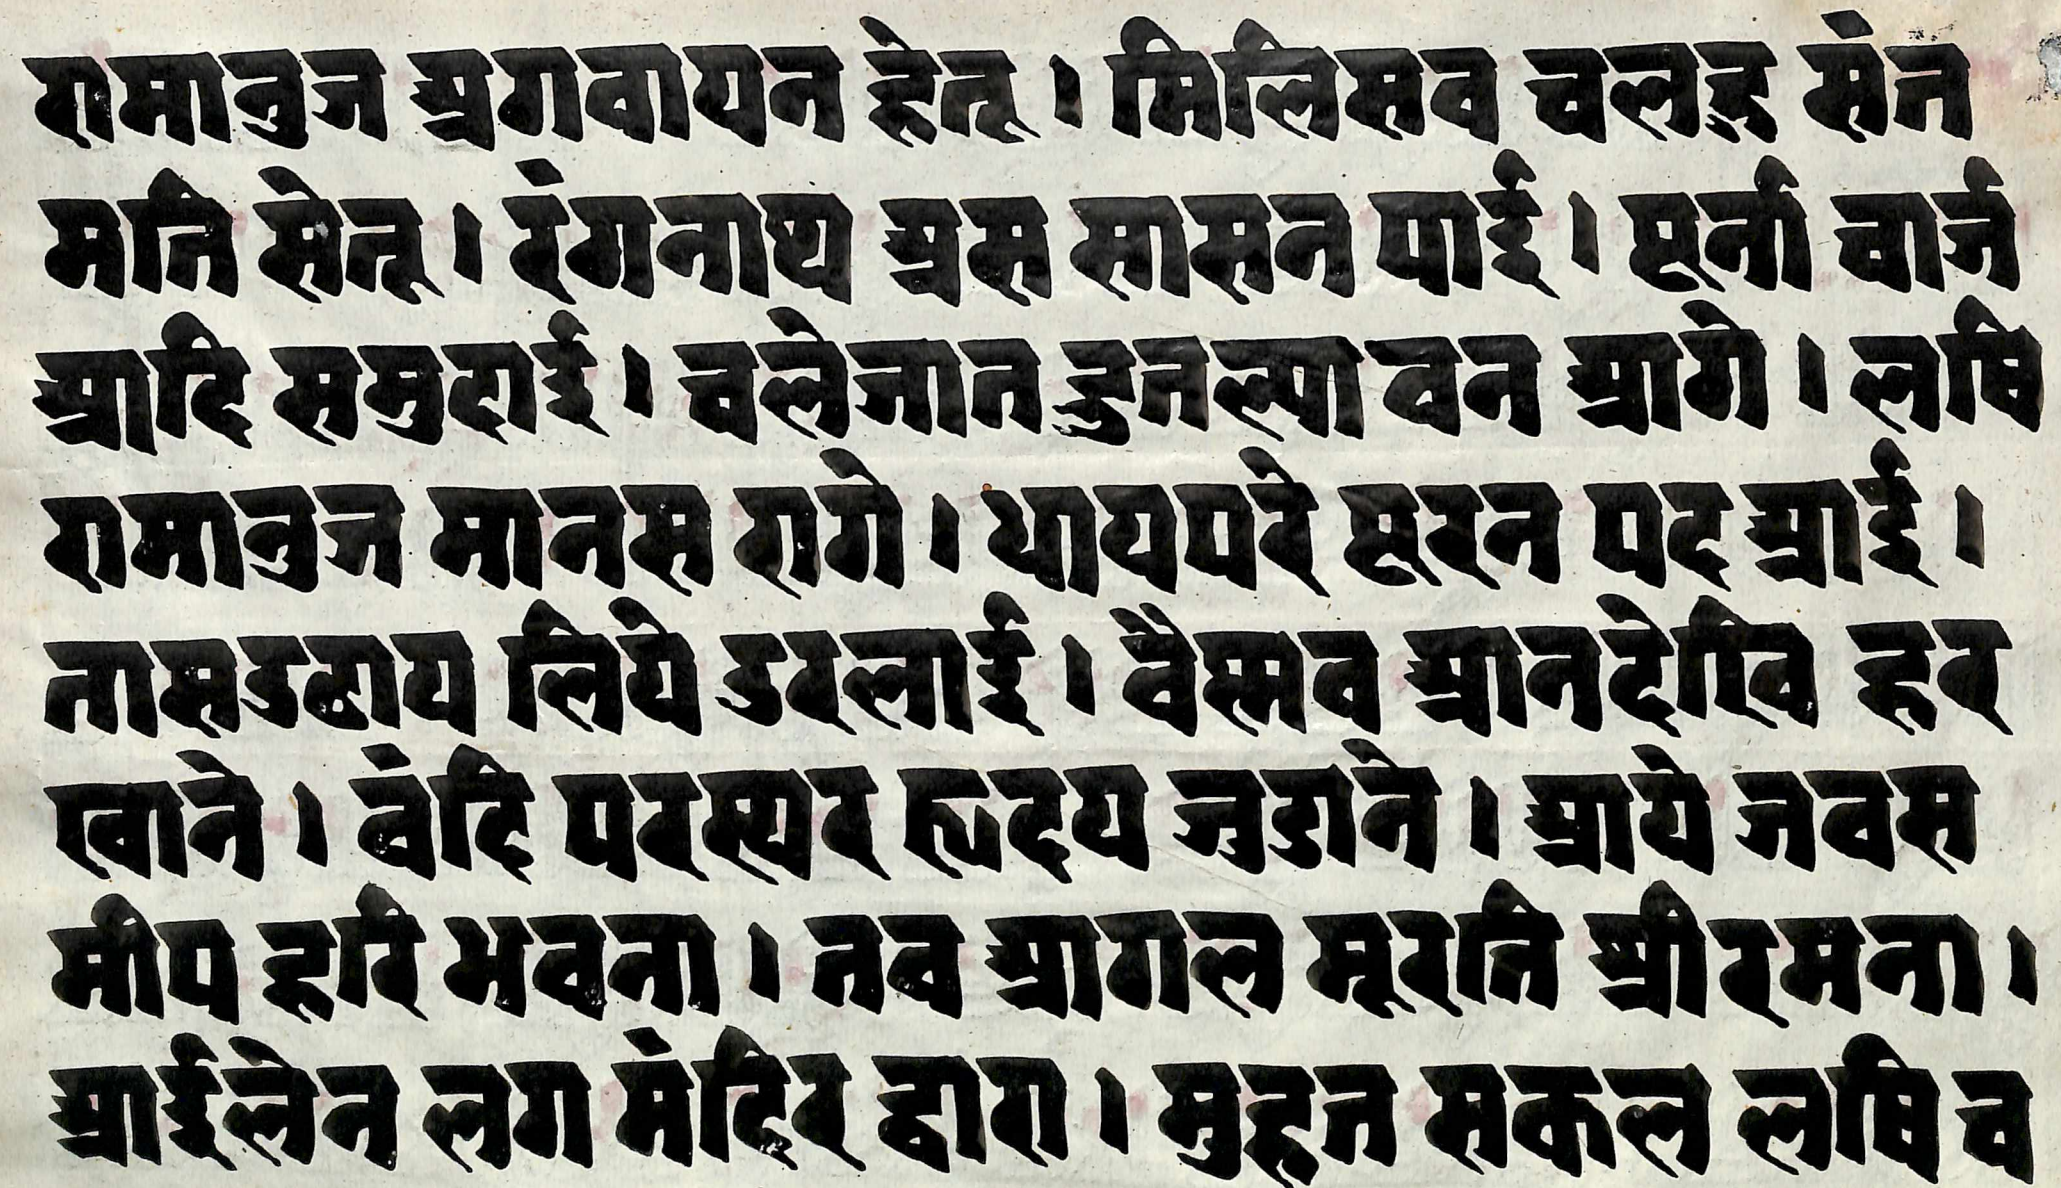 रामानुज अगवायन हेतू । मिलिसब चलहु संत
मति सेतू । रंगनाथ अस सासन पाई । पूर्ना चार्ज
आदि समुदाई । चलेजात हुतल्पावन आगे । लषि
रामानुज मानस रागे । धायपरे पूरन पद आई ।
तासउठाय लिये उरलाई । वैस्मव आनदेखि हर
खाने । वंदि परस्पर हृदय जुडाने । आये जबस
मीप हरि भवना । तब आगल मूरति श्रीरमना ।
आईलेन लग मंदिर द्वारा । मुहत सकल लषि च